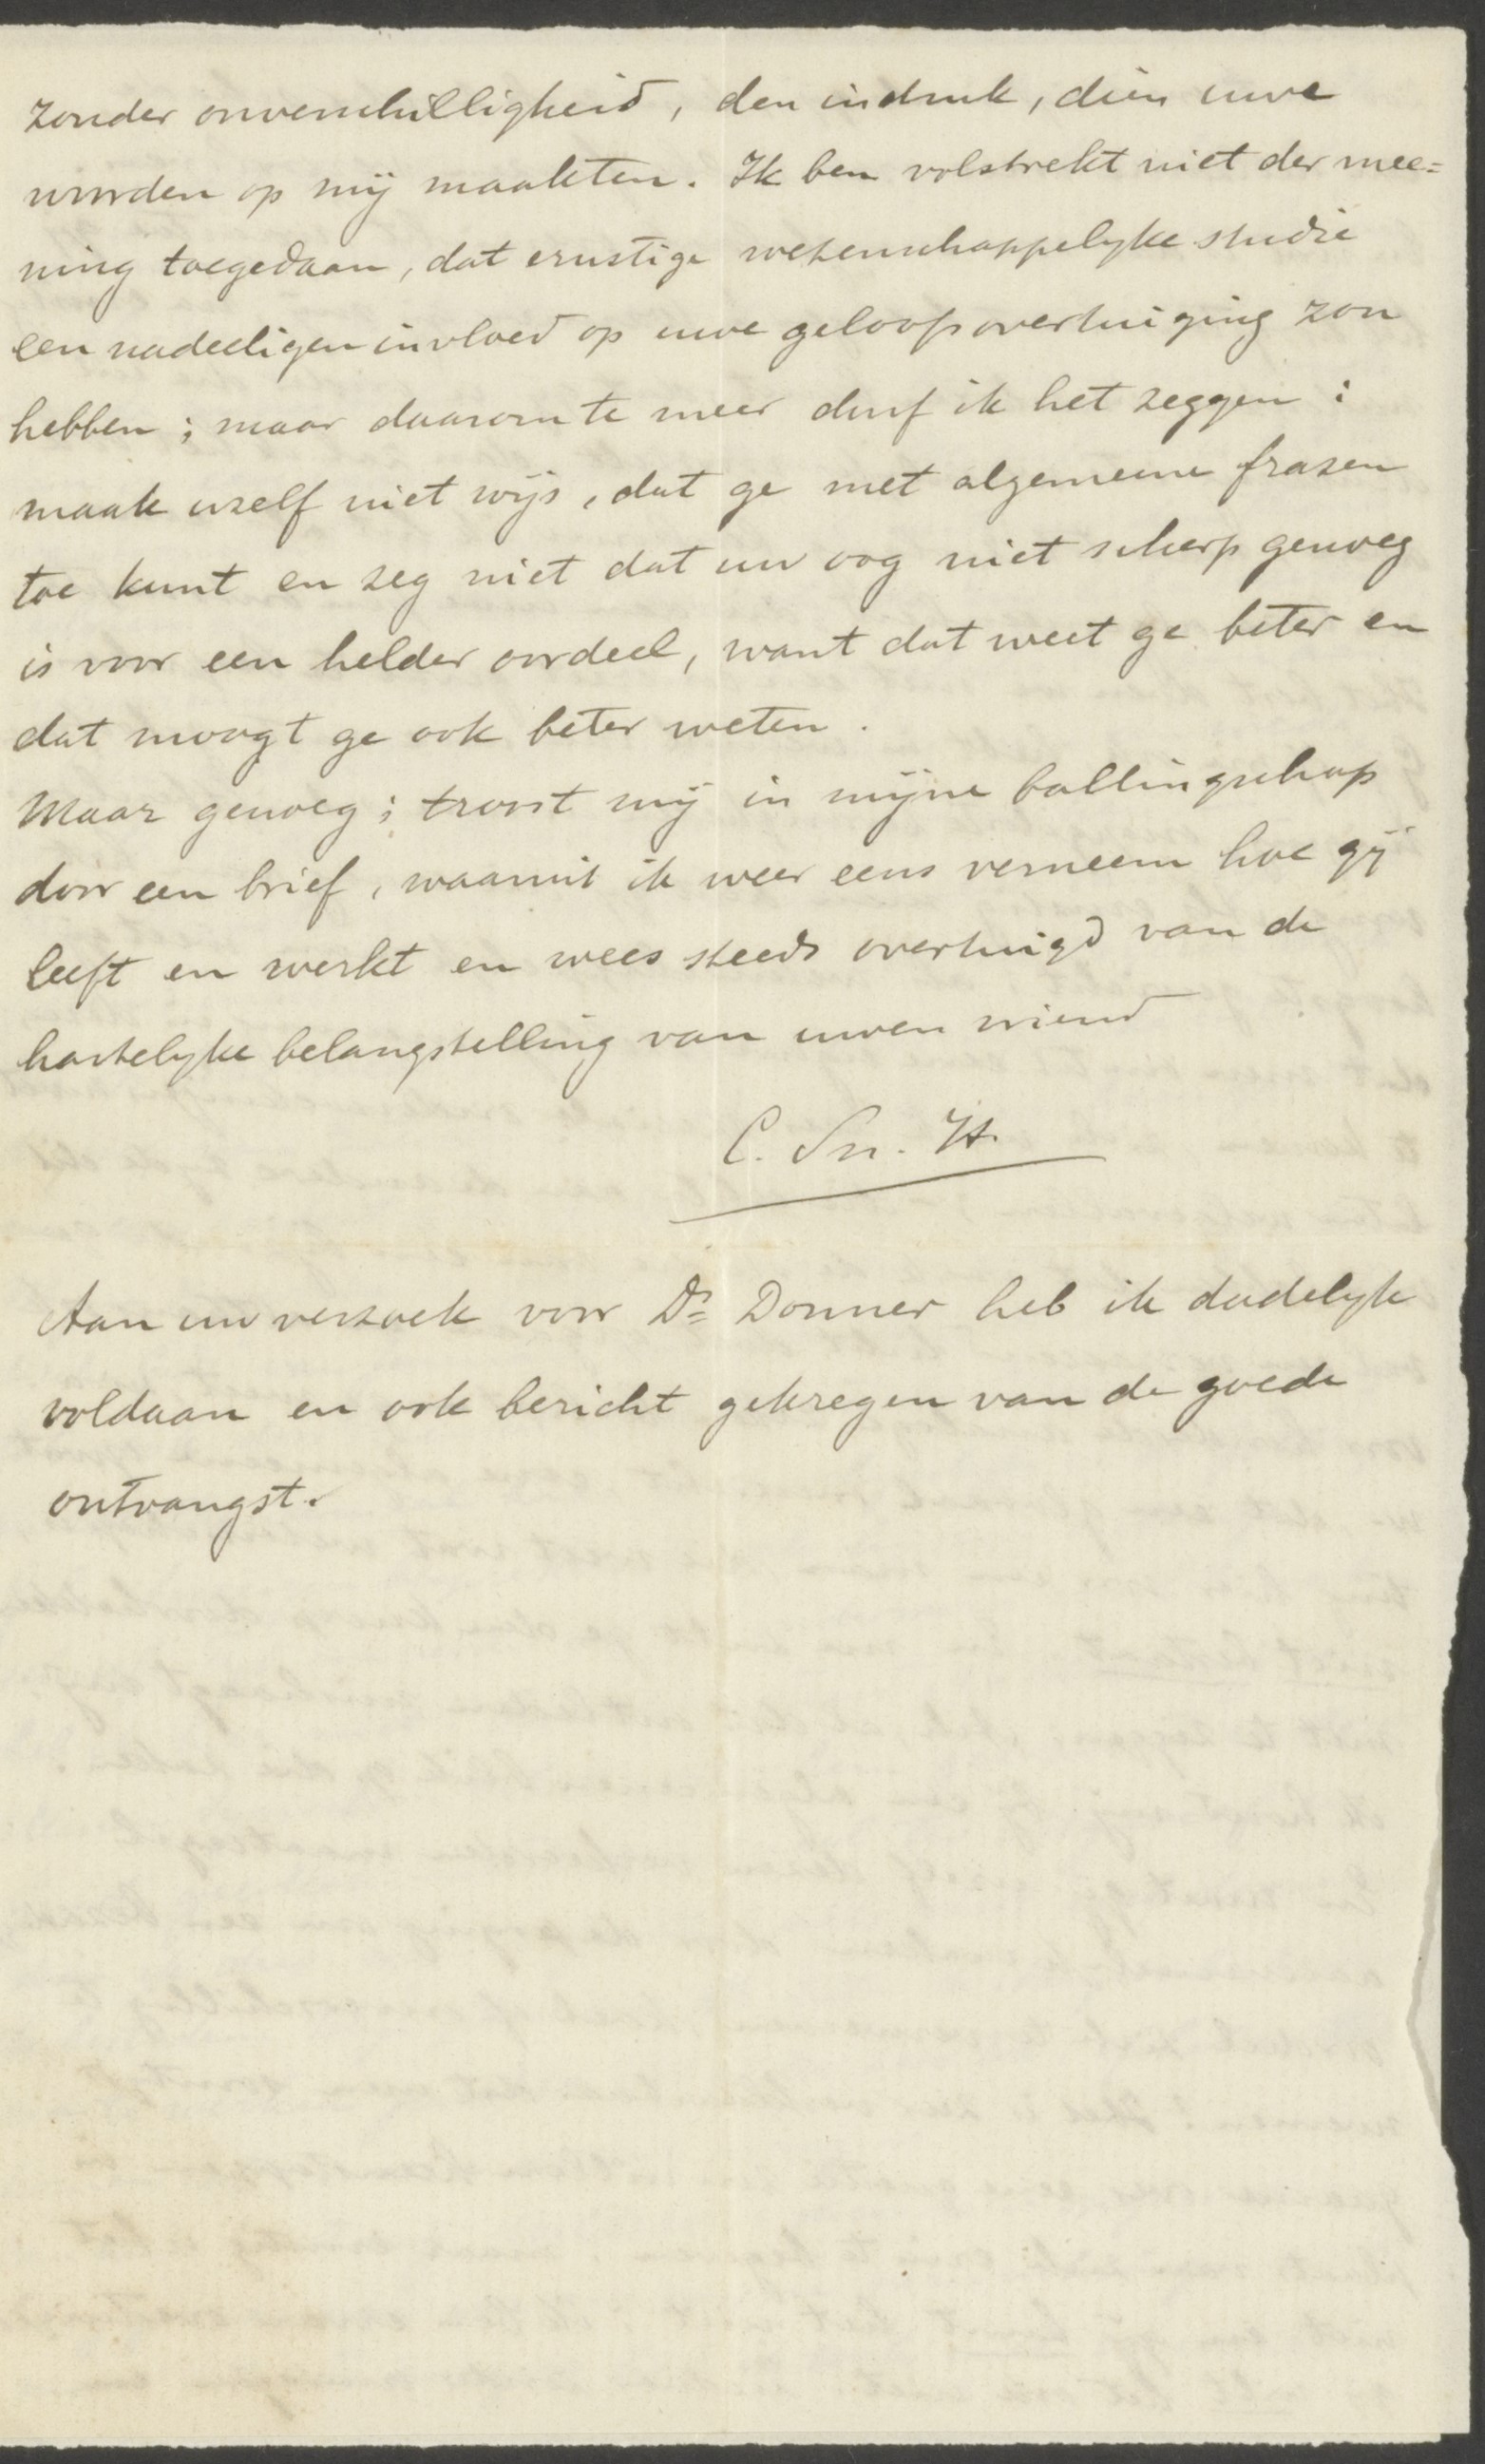 zonder onverschilligheid, den indruk, dien uwe
woorden op mij maakten. Ik ben volstrekt niet der mee=
ning toegedaan, dat ernstige wetenschappelyke studie
een nadeeligen invloed op uwe geloofsovertuiging zou
hebben; maar daarom te meer durf ik het zeggen:
maak uzelf niet wijs, dat ge met algemeene frazen
toe kunt en zeg niet dat uw oog niet scherp genoeg
is voor een helder oordeel, want dat weet ge beter en
dat moogt ge ook beter weten.
Maar genoeg; troost mij in mijne ballingschap
door een brief, waaruit ik weer eens verneem hoe gij
leeft en werkt en wees steeds overtuigd van de
hartelyke belangstelling van uwen vriend
C. Sn. H.
Aan uw verzoek voor Dr Donner heb ik dadelyk
voldaan en ook bericht gekregen van de goede
ontvangst.